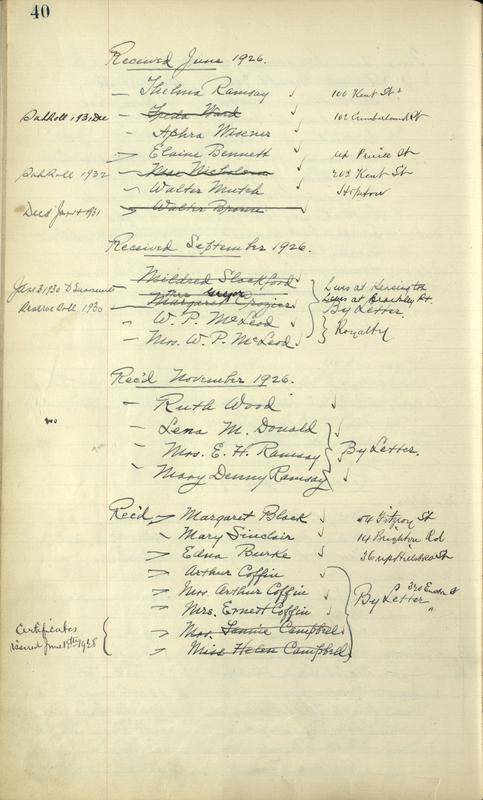 40
Received June 1926.
Thelma Ramsay 100 Kent St
Freda Ward 102 Cumberland St
Aphra Weener
Elaine Bennett Up Prince St
1932 Miss Nicholson 202 Kent St
Walter Mutch Hopeton
Died Jan 1931 Walter Brown
Received September 1926.
June 3, 1930 Mildred Stackford Lives at Kensington
Reserve Roll 1930 Margaret Crozier Lives at Brackley Pt. By Letter.
W. P. McLeod
Mrs. W. P. McLeod Royalty
Rec'd November 1926.
Ruth Wood
Lena M. Donald
Mrs. E. H. Ramsay By Letter.
Mary Denny Ramsay
Rec'd Margaret Black 54 Fitzroy St
Mary Sinclair 14 Brighton Rd
Edna Burke 36 up Hillsboro St
Arthur Coffin
Mrs. Arthur Coffin By Letter
Mrs. Ernest Coffin
Certificates Mrs. Campbell
issued June 1928 Miss Helen Campbell